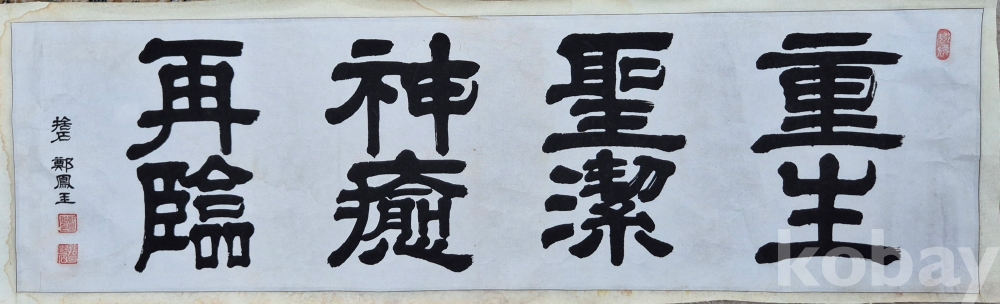 重生
聖潔
神癒
再臨
鄭鳳
kobay